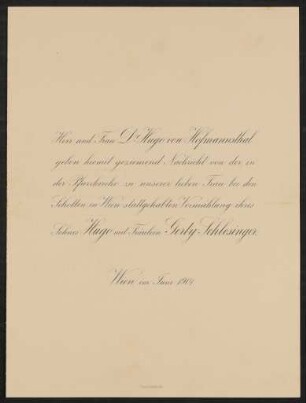 Herr und Frau Dr. Hugo von Hofmannsthal
geben hiemit geziemend Nachricht von der in
der Pfarrkirche zu unserer lieben Frau bei den
Schotten in Wien stattgehabten Vermählung ihres
Sohnes Hugo mit Fräulein Gerty Schlesinger.
Wien im Juni 1901.